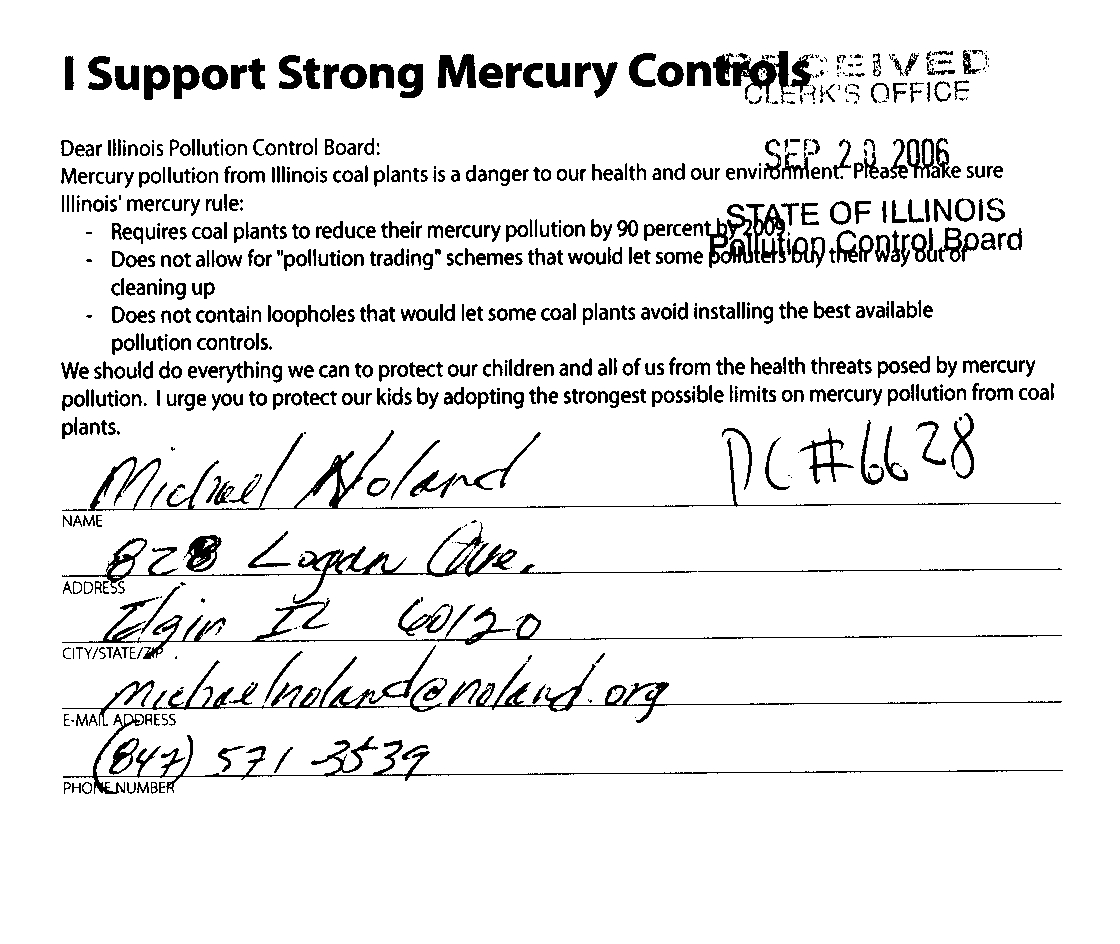 I Support Strong Mercury Controls
RECEIVED
CLERK'S OFFICE
SEP 20 2006
STATE OF ILLINOIS
Pollution Control Board
Dear Illinois Pollution Control Board:
Mercury pollution from Illinois coal plants is a danger to our health and our environment. Please make sure
Illinois' mercury rule:
- Requires coal plants to reduce their mercury pollution by 90 percent by 2009.
- Does not allow for "pollution trading" schemes that would let some polluters buy their way out of
cleaning up
- Does not contain loopholes that would let some coal plants avoid installing the best available
pollution controls.
We should do everything we can to protect our children and all of us from the health threats posed by mercury
pollution. I urge you to protect our kids by adopting the strongest possible limits on mercury pollution from coal
plants.
Michael Noland PC #6628
NAME
828 Logan Ave.
ADDRESS
Elgin IL 60120
CITY/STATE/ZIP
michaelnoland@noland.org
E-MAIL ADDRESS
(847) 571 3539
PHONE NUMBER